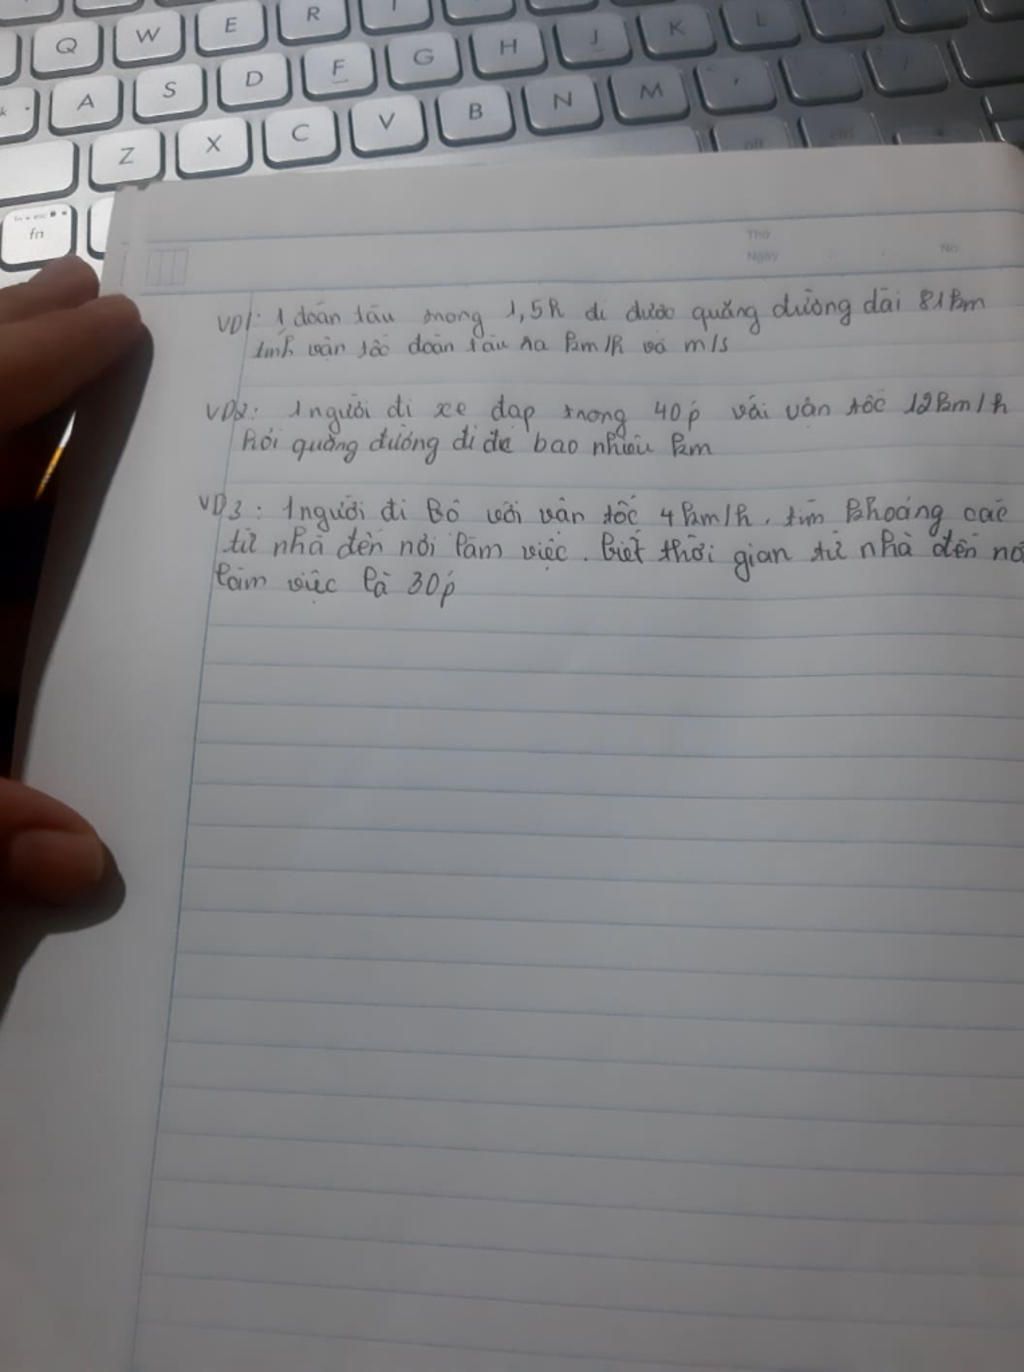 Q W E R
A S D F G H J K L
Z X C V B N M
fn
alt
Thứ
Ngày No
VD1: 1 đoàn tàu trong 1,5h đi được quãng đường dài 81km
tính vận tốc đoàn tàu ra km/h và m/s
VD2: 1 người đi xe đạp trong 40p với vân tốc 12km/h
hỏi quãng đường đi đc bao nhiêu km
VD3: 1 người đi Bô với vân tốc 4km/h. tìm khoảng các
từ nhà đến nơi làm việc. biết thời gian từ nhà đến nơ
làm việc là 30p